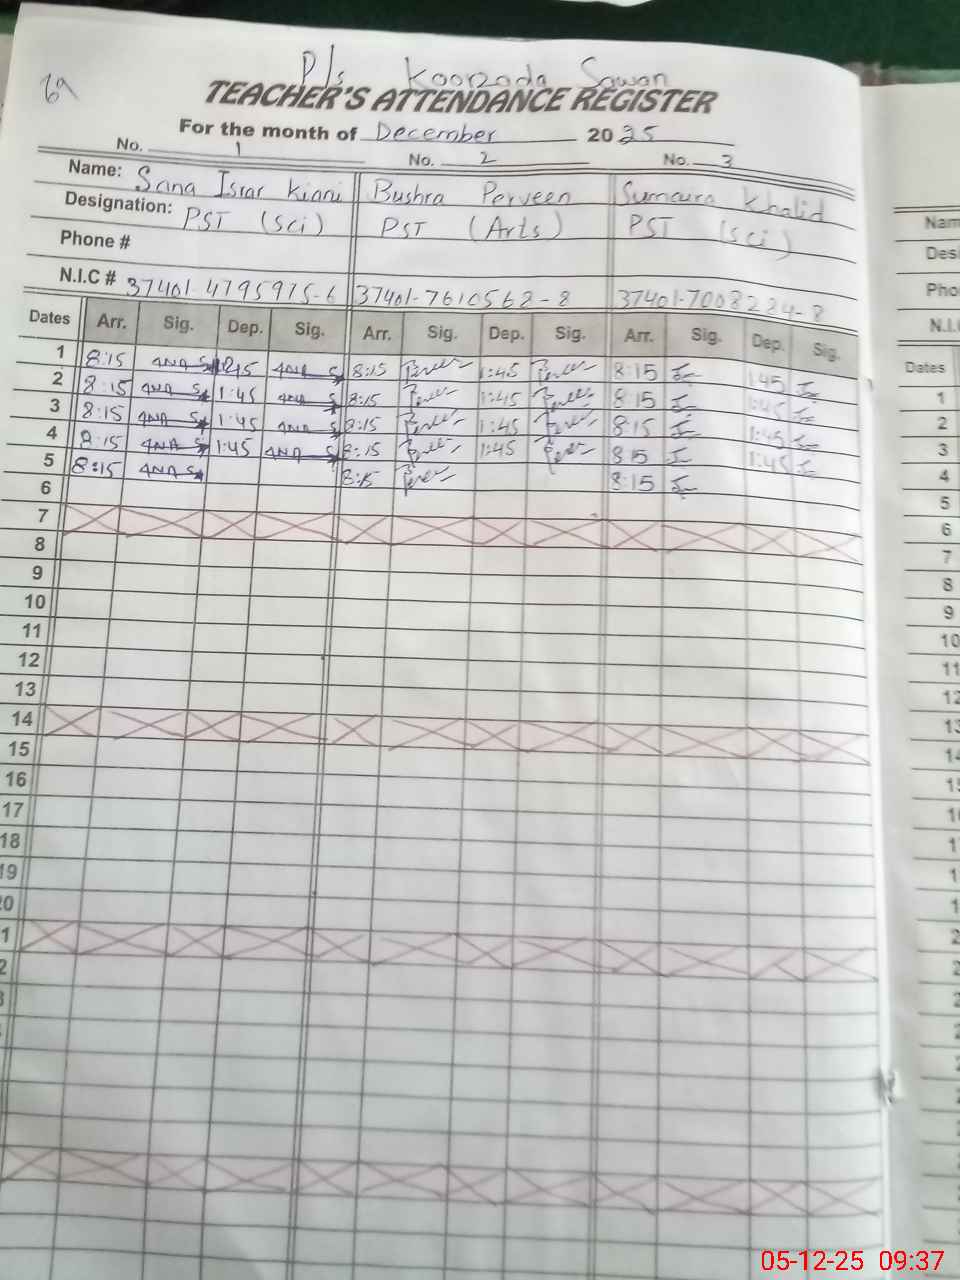 69
P/s Koorzada Sawan
TEACHER'S ATTENDANCE REGISTER
For the month of December 2025
No. 1 No. 2 No. 3
Name: Sana Israr Kiani Bushra Perveen Sumaira Khalid
Designation: PST (Sci) PST (Arts) PST (Sci)
Phone #
N.I.C # 37401-4795975-6 37401-7610568-8 37401-7008224-8
Dates Arr. Sig. Dep. Sig. Arr. Sig. Dep. Sig. Arr. Sig. Dep. Sig.
1 8:15 8:15 1:45 8:15 1:45
2 8:15 1:45 8:15 1:45 8:15 1:45
3 8:15 1:45 8:15 1:45 8:15 1:45
4 8:15 1:45 8:15 1:45 8:15 1:45
5 8:15 8:15 8:15
6
7
8
9
10
11
12
13
14
15
16
17
18
19
20
1
2
Nam
Desi
Pho
N.I.
Dates
1
2
3
4
5
6
7
8
9
10
11
12
13
14
05-12-25 09:37